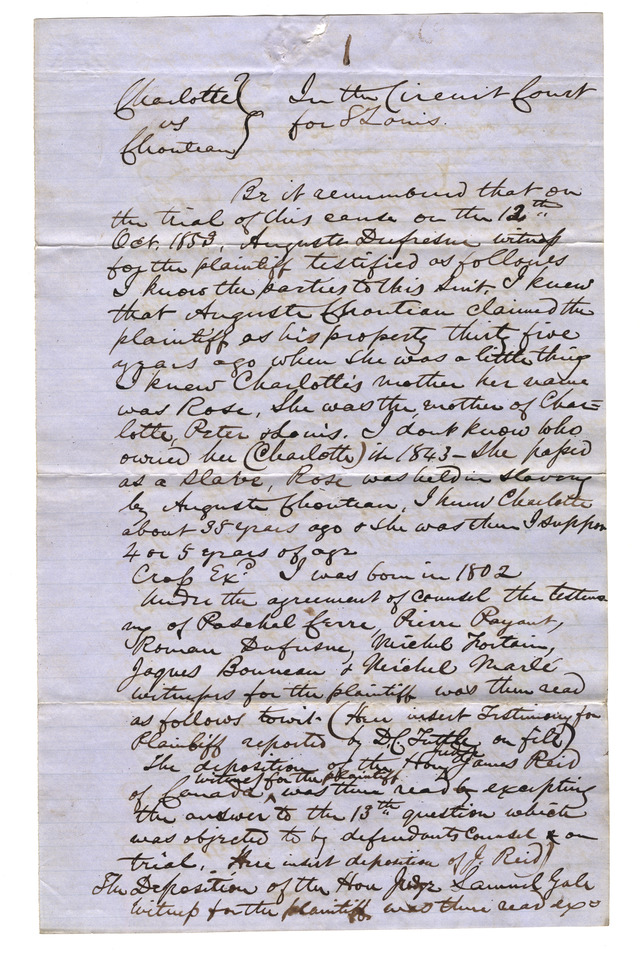 1
Charlotte } In the Circuit Court
vs } for St Louis.
Chouteau }
Be it remembered that on
the trial of this cause on the 12th
Oct. 1853, Auguste Dufresne witness
for the plaintiff testified as follows
I know the parties to this suit I knew
that Auguste Chouteau claimed the
plaintiff as his property thirty five
years ago when she was a little thing
I knew Charlotte's mother her name
was Rose, She was the mother of Char=
lotte, Peter & Louis. I dont know who
owned her (Charlotte) in 1843 – She passed
as a slave, Rose was held in slavery
by Auguste Chouteau, I knew Charlotte
about 35 years ago & she was then I suppose
4 or 5 years of age
Cross Exd I was born in 1802
Under the agreement of counsel the testimo
ny of Paschel Cerre, Pierre Payant,
Roman Dufresne, Michel Fortain,
Jaques Bonneau & Michel Marlé
witnesses for the plaintiff was then read
as follows towit. (Here insert Testimony for
Plaintiff reported by D.C. Tuttle on file)
The deposition of the Hon Judge James Reid
of Canada, witness for the plaintiff was then read by excepting
the answer to the 13th question which
was objected to by defendants counsel & on
trial. Here insert deposition of J. Reid)
The Deposition of the Hon Judge Samuel Gale
witness for the plaintiff was then read ex=